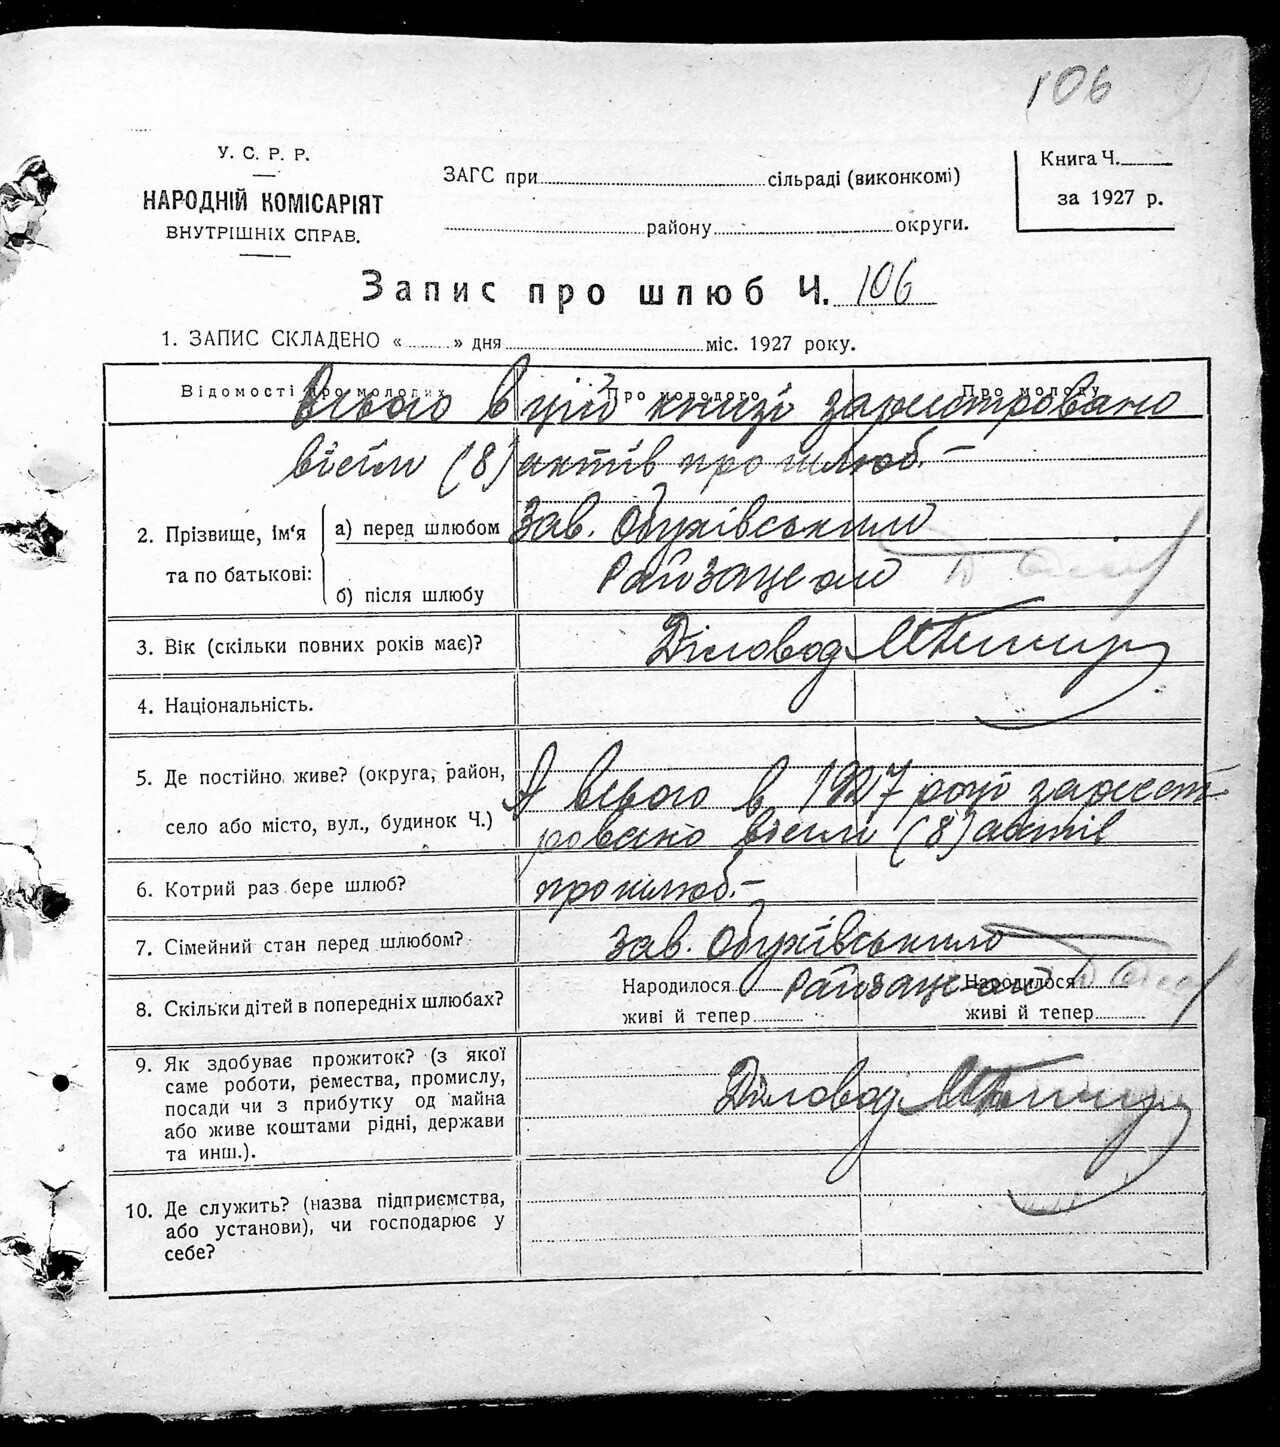 106
У. С. Р. Р.
НАРОДНІЙ КОМІСАРІЯТ
ВНУТРІШНІХ СПРАВ.
ЗАГС при сільраді (виконкомі)
району округи.
Книга Ч.
за 1927 р.
Запис про шлюб Ч. 106
1. ЗАПИС СКЛАДЕНО « » дня міс. 1927 року.
Відомості про молодих Про молодого Про молоду
Всього в цій книзі зареєстровано
вісім (8) актів про шлюб. —
2. Прізвище, ім‘я та по батькові:
а) перед шлюбом
б) після шлюбу
Зав. Обухівським
Райзагсом
3. Вік (скільки повних років має)?
Діловод
4. Національність.
5. Де постійно живе? (округа, район,
село або місто, вул., будинок Ч.)
А всього в 1927 році зареєст-
ровано вісім (8) актів
6. Котрий раз бере шлюб?
про шлюб. —
7. Сімейний стан перед шлюбом?
Зав. Обухівським
Райзагсом
8. Скільки дітей в попередніх шлюбах?
Народилося Народилося
живі й тепер живі й тепер
9. Як здобуває прожиток? (з якої
саме роботи, ремества, промислу,
посади чи з прибутку од майна
або живе коштами рідні, держави
та инш.).
Діловод
10. Де служить? (назва підприємства,
або установи), чи господарює у
себе?